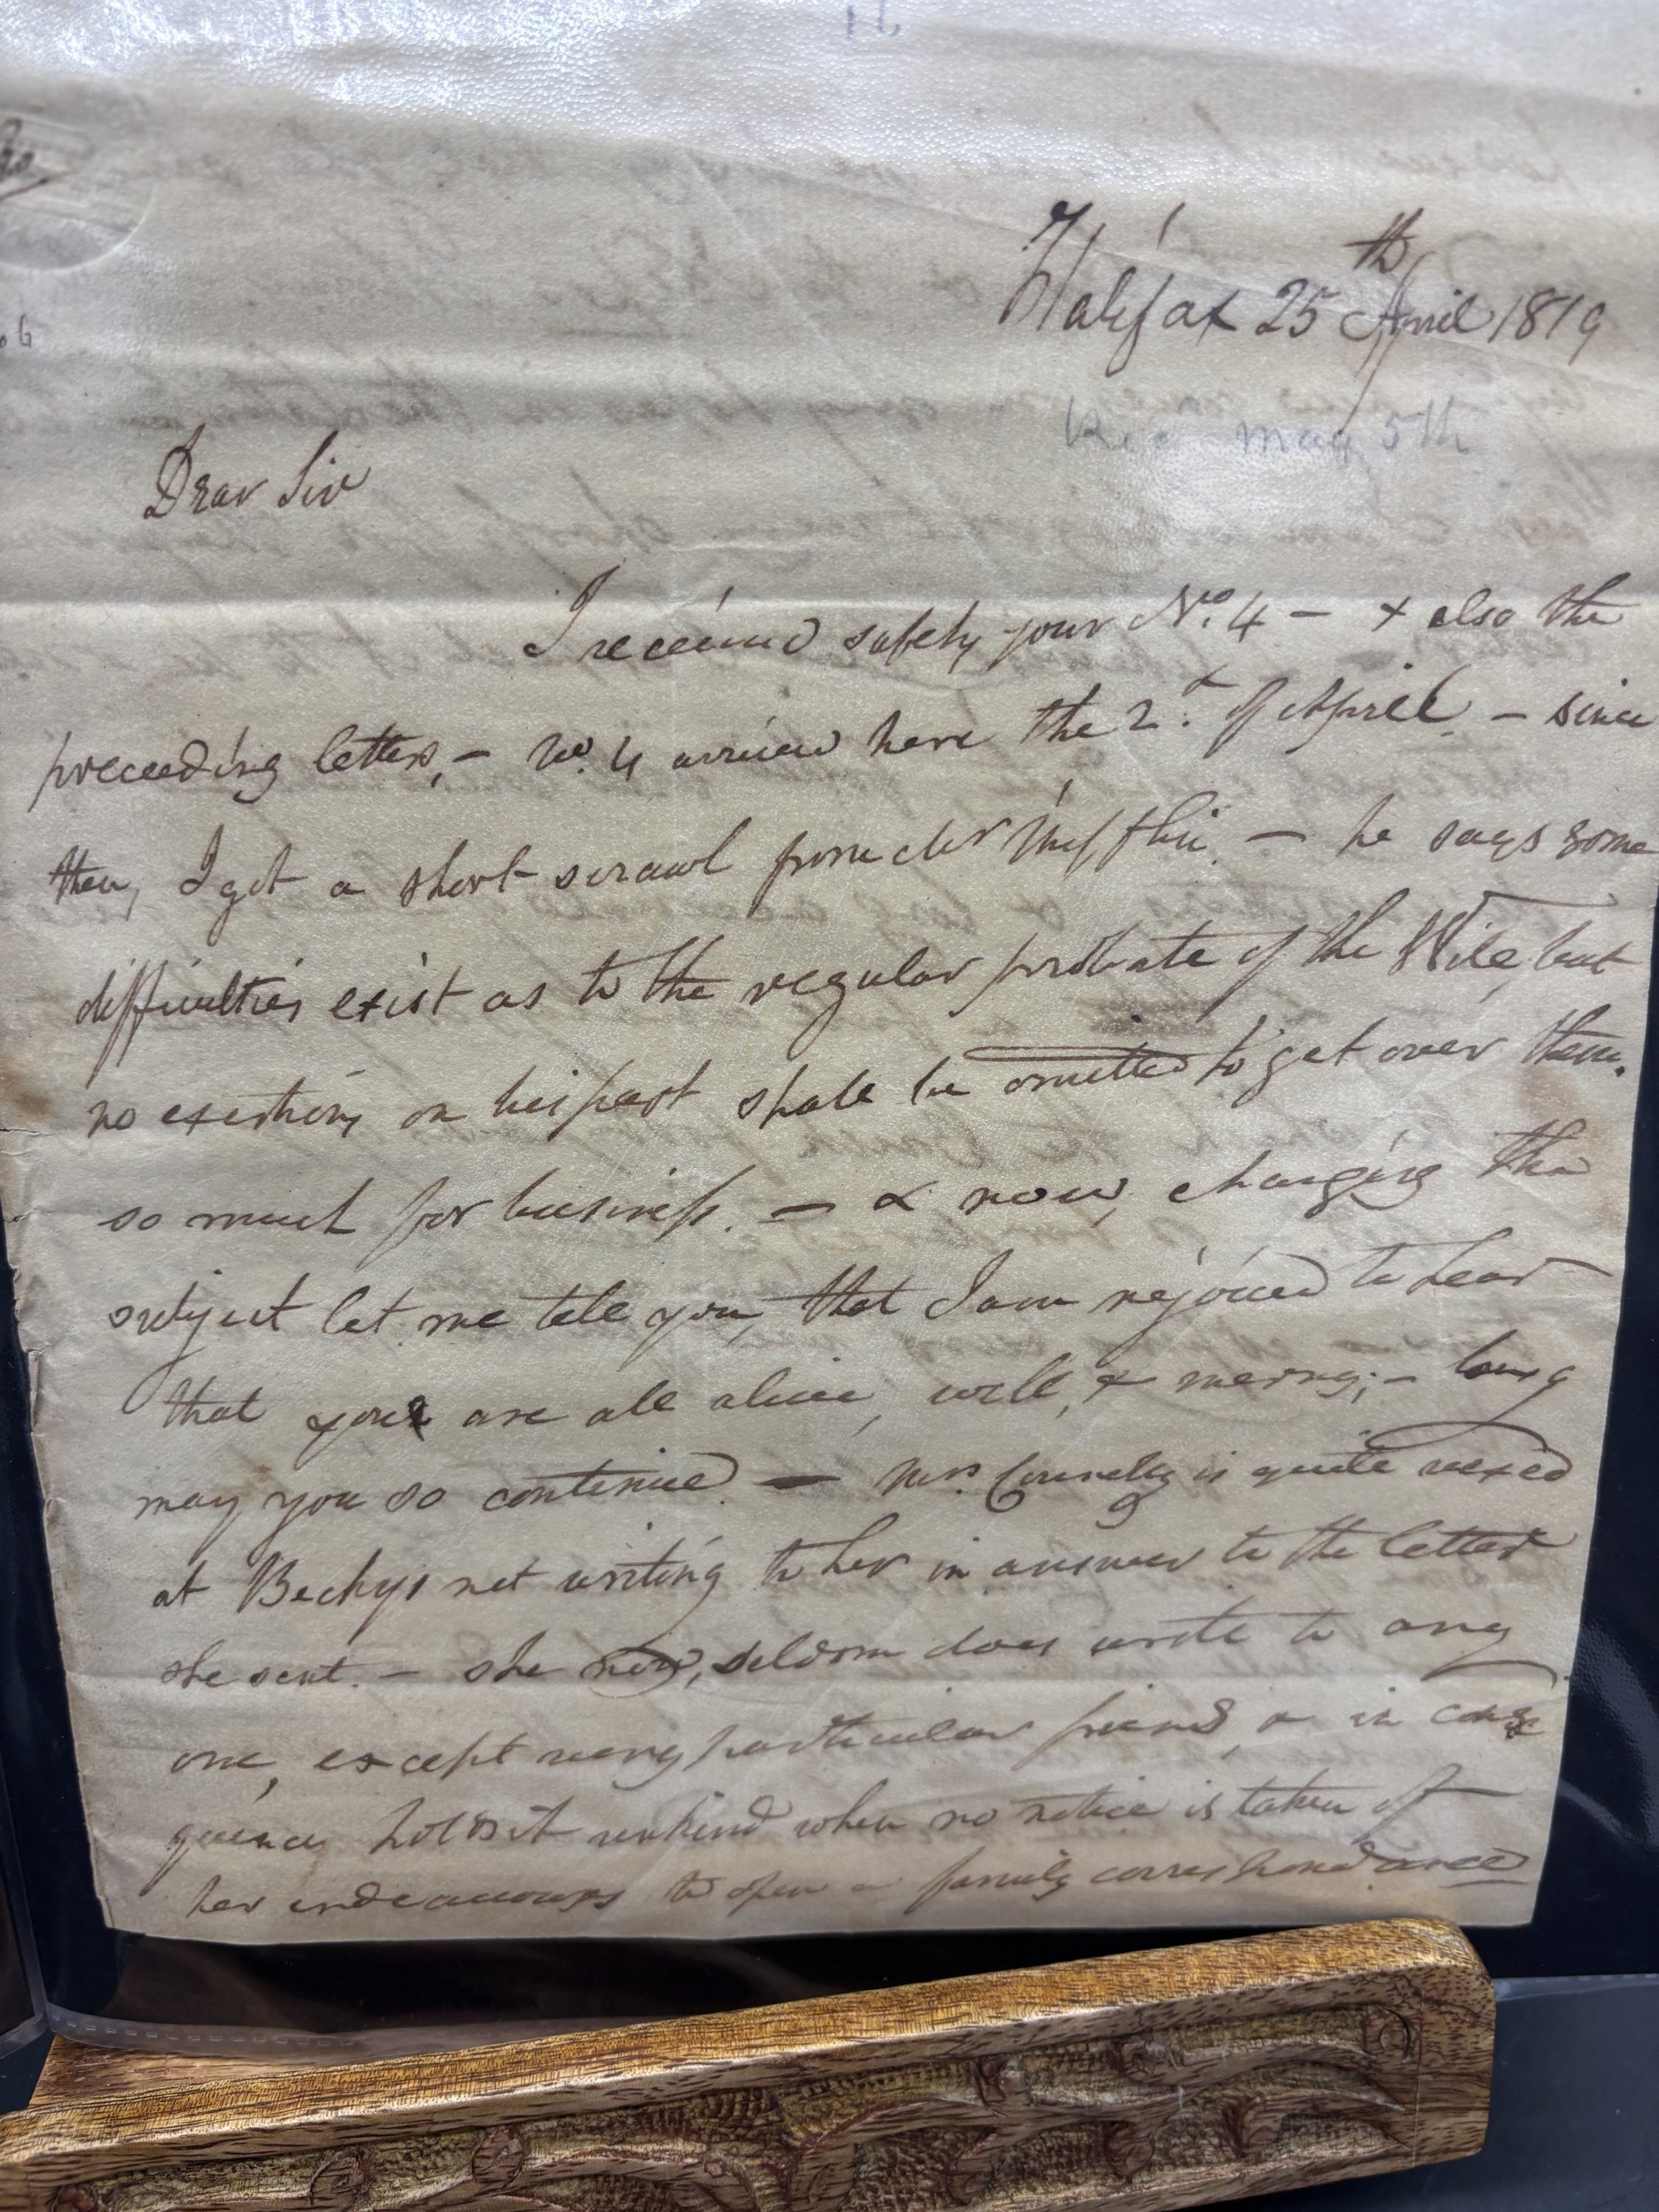 Halifax 25th April 1819
Rec. May 5th
Dear Sir
I received safely your No. 4 – & also the
preceeding letters, – No. 4 arrived here the 2d. of April. – since
then, I got a short scrawl from – he says some
difficulties exist as to the regular probate of the Will, but
no exertions on his part shall be omitted to get over them.
so much for business. – & now, changing the
subject let me tell you, that I am rejoiced to hear
that you are all alive, well, & merry; – long
may you so continue. – Mrs. is quite vexed
at Beckys not writing to her in answer to the letter
she sent. – she now, seldom does write to any
one, except very particular friends, & in conse
quence holds it unkind when no notice is taken of
her endeavours to open a family correspondance